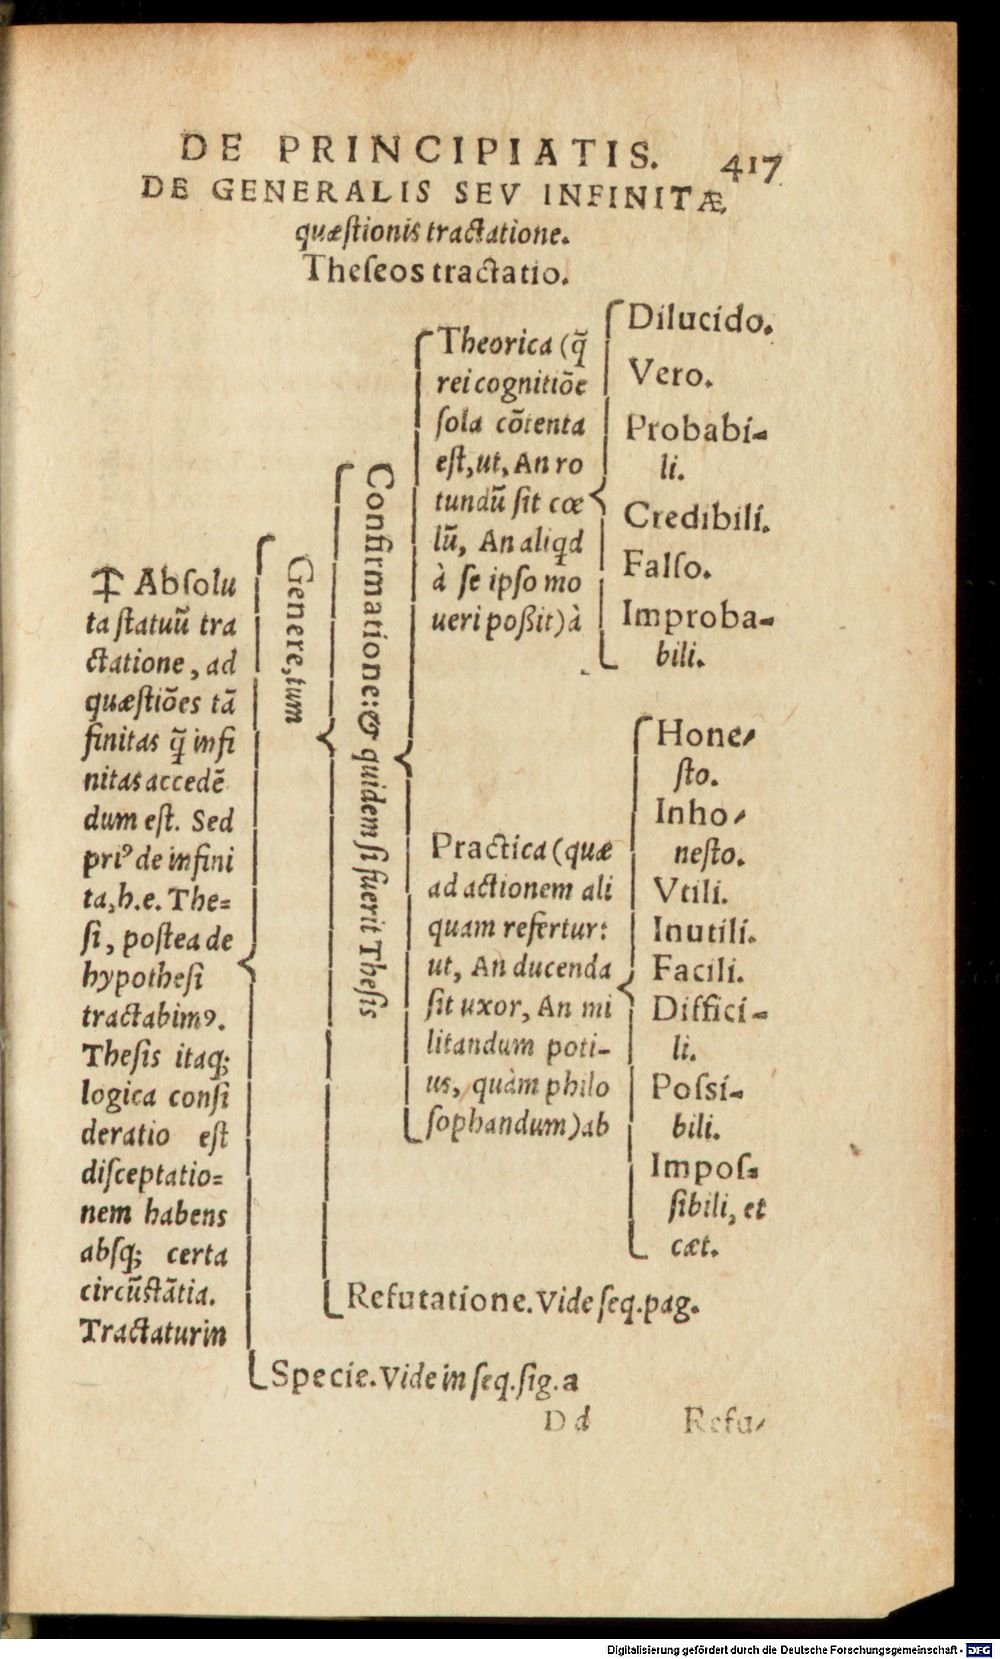 DE PRINCIPIATIS. 417
DE GENERALIS SEV INFINITÆ
quæſtionis tractatione.
Theſeos tractatio.
☩ Abſolu
ta ſtatuū tra
ctatione, ad
quæſtiões tā
finitas q̃ infi
nitas accedē
dum eſt. Sed
priꝰ de infini
ta, h.e. The=
ſi, poſtea de
hypotheſi
tractabimꝰ.
Theſis itaq;
logica conſi
deratio eſt
diſceptatio=
nem habens
abſq; certa
circūſtātia.
Tractatur in
Genere, tum
Confirmatione: & quidem ſi fuerit Theſis
Theorica (q̃
rei cognitiõe
ſola cõtenta
eſt, ut, An ro
tundū ſit cœ
lū, An aliqd
à ſe ipſo mo
ueri poßit) à
Dilucido.
Vero.
Probabi-
li.
Credibili.
Falſo.
Improba-
bili.
Practica (quæ
ad actionem ali
quam refertur:
ut, An ducenda
ſit uxor, An mi
litandum poti-
us, quàm philo
ſophandum) ab
Hone-
ſto.
Inho-
neſto.
Vtili.
Inutili.
Facili.
Diffici-
li.
Poſſi-
bili.
Impoſ-
ſibili, et
cæt.
Refutatione. Vide ſeq. pag.
Specie. Vide in ſeq. ſig. a
D d Refu-
Digitalisierung gefördert durch die Deutsche Forschungsgemeinschaft - DFG